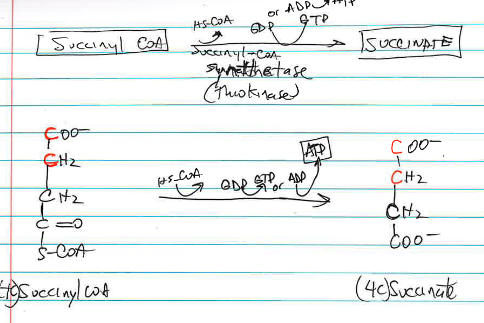 or ADP ATP
HS-CoA GDP GTP
Succinyl CoA
Succinyl-CoA
SUCCINATE
synthetase
(Thiokinase)
COO-
CH2
CH2
C=O
S-CoA
(4c) Succinyl CoA
HS-CoA GDP GTP or ADP
ATP
COO-
CH2
CH2
COO-
(4c) Succinate